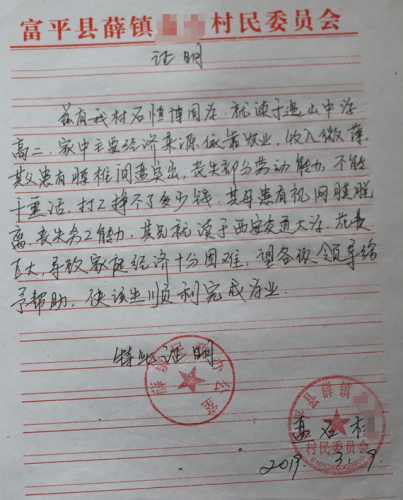 富平县薛镇 村民委员会
证明
兹有我村石慎博同学,就读于迤山中学
高二,家中主要经济来源依靠农业,收入微薄
其父患有腰椎间盘突出,丧失部分劳动能力,不能
干重活,打工挣不了多少钱,其母患有视网膜脱
离,丧失务工能力,其兄就读于西安交通大学,花费
巨大,导致家庭经济十分困难,望各级领导给
予帮助,使该生顺利完成学业。
特此证明
薛镇 办公室
富平县薛镇
村民委员会
石村
2019.3.9